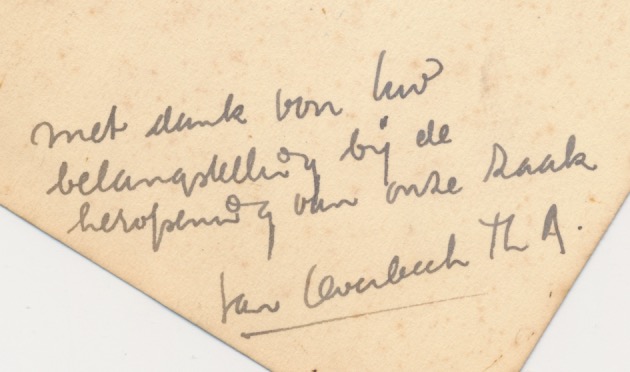 met dank voor Uw
belangstelling bij de
heropening van onze zaak
Jan Overbeek Th A.